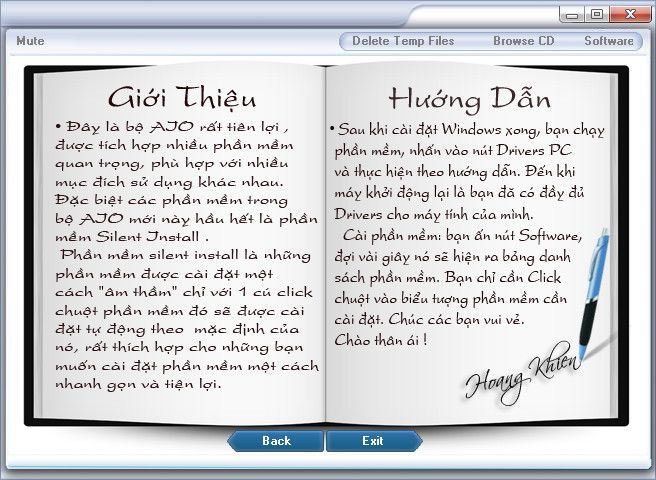 Mute
Delete Temp Files Browse CD Software
Giới Thiệu
• Đây là bộ AIO rất tiên lợi ,
được tích hợp nhiều phần mềm
quan trọng, phù hợp với nhiều
mục đích sử dụng khác nhau.
Đặc biệt các phần mềm trong
bộ AIO mới này hầu hết là phần
mềm Silent Install .
Phần mềm silent install là những
phần mềm được cài đặt một
cách "âm thầm" chỉ với 1 cú click
chuột phần mềm đó sẽ được cài
đặt tự động theo mặc định của
nó, rất thích hợp cho những bạn
muốn cài đặt phần mềm một cách
nhanh gọn và tiện lợi.
Hướng Dẫn
• Sau khi cài đặt Windows xong, bạn chạy
phần mềm, nhấn vào nút Drivers PC
và thực hiện theo hướng dẫn. Đến khi
máy khởi động lại là bạn đã có đầy đủ
Drivers cho máy tính của mình.
Cài phần mềm: bạn ấn nút Software,
đợi vài giây nó sẽ hiện ra bảng danh
sách phần mềm. Bạn chỉ cần Click
chuột vào biểu tượng phần mềm cần
cài đặt. Chúc các bạn vui vẻ.
Chào thân ái !
Hoang Khien
Back Exit